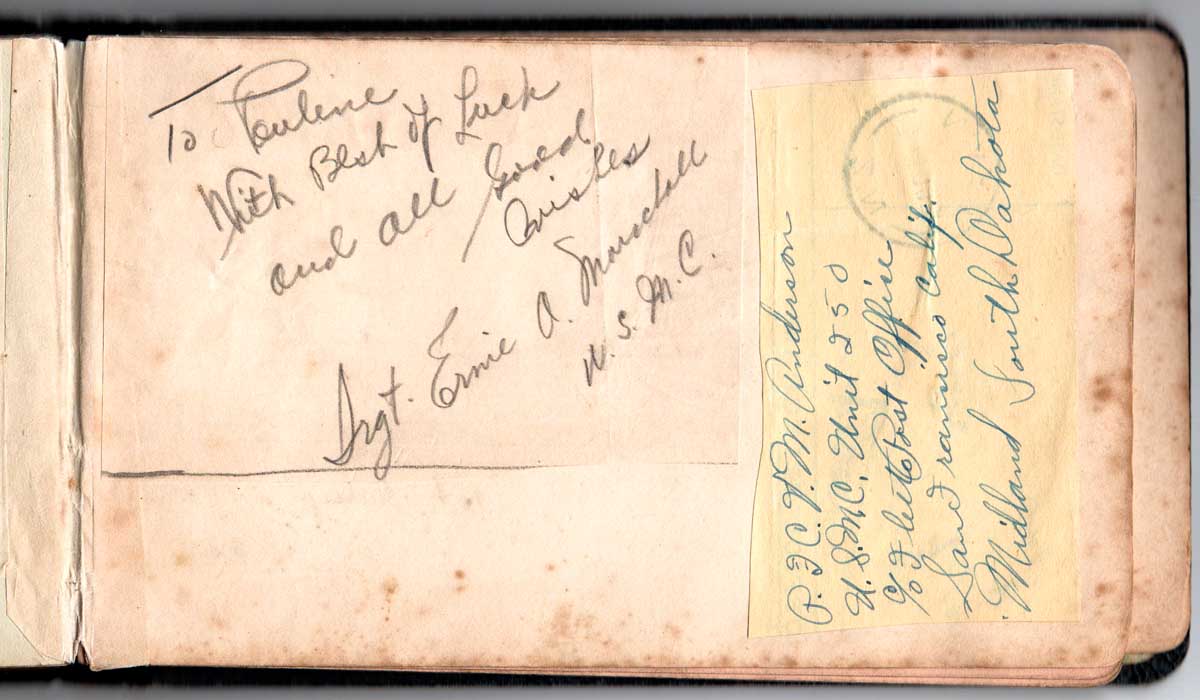 To Pauline
With Best of Luck
and all Good
Wishes
Srgt. Ernie A. Marchell
U. S. M. C.
P.F.C. V. M. Anderson
U.S.M.C. Unit 250
℅ Fleet Post Office
San Francisco Calif.
Midland South Dakota